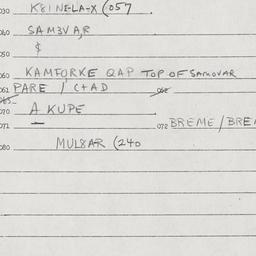 030 K81NE-LA-X (057
040 SAM3VA,R
$
050
060 KAMFORKE QAP TOP OF SAMOVAR
061 PARE / C+AD 062
065
070 A KUPE
071 072 BREME / BRE
080 MUL8AR (240